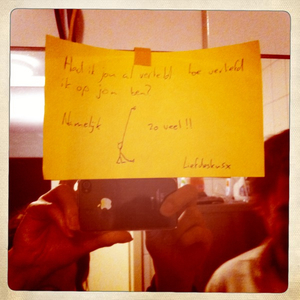 Had ik jou al verteld hoe verliefd
ik op jou ben?
Namelijk zo veel!!
Liefdeskusx